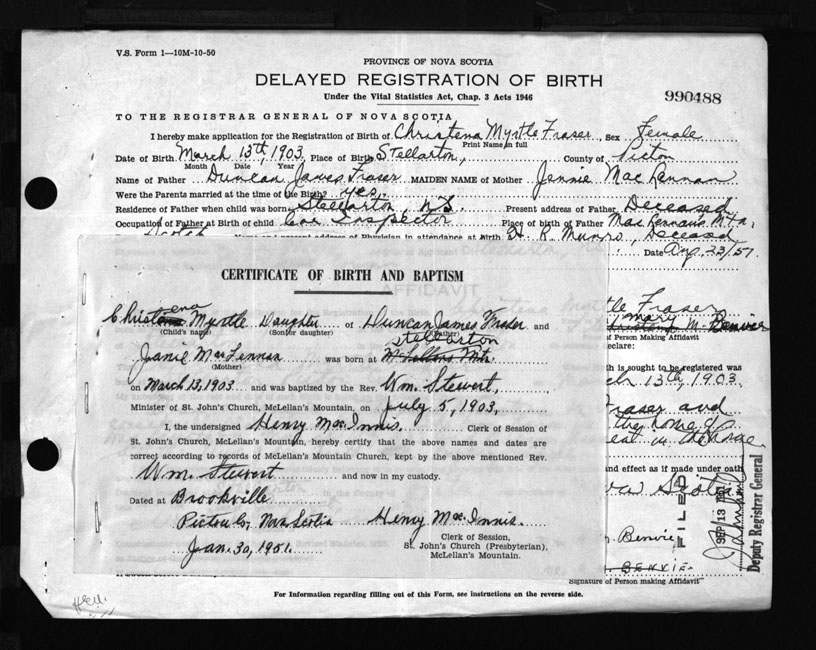 V.S. Form 1—10M-10-50
PROVINCE OF NOVA SCOTIA
DELAYED REGISTRATION OF BIRTH
990488
Under the Vital Statistics Act, Chap. 3 Acts 1946
TO THE REGISTRAR GENERAL OF NOVA SCOTIA
I hereby make application for the Registration of Birth of Christena Myrtle Fraser, Sex Female
Print Name in full
Date of Birth March 13th, 1903 Place of Birth Stellarton, County of Picton
Month Date Year
Name of Father Duncan James Fraser MAIDEN NAME of Mother Jennie MacLennan
Were the Parents married at the time of the Birth? yes.
Residence of Father when child was born Stellarton N.S. Present address of Father Deceased
Occupation of Father at Birth of child Car Inspector Place of birth of Father MacLennan's Mta,
Scotch address of Physician in attendance at Birth H. K. Munro, Deceased
Date Aug. 23/51
CERTIFICATE OF BIRTH AND BAPTISM
AFFIDAVIT
ena
Christena Myrtle Daughter of Duncan James Fraser and
(Child's name) (Son or daughter) (Father)
Stellarton
Janie MacLennan was born at
(Mother)
on March 13, 1903 and was baptized by the Rev. Wm. Stewert,
Minister of St. John's Church, McLellan's Mountain, on July 5, 1903,
I, the undersigned Henry MacInnis. Clerk of Session of
St. John's Church, McLellan's Mountain, hereby certify that the above names and dates are
correct according to records of McLellan's Mountain Church, kept by the above mentioned Rev.
Wm. Stewert and now in my custody.
Dated at Brookville
Pictou Co, Nova Scotia Henry MacInnis.
Jan. 30, 1951. Clerk of Session,
St. John's Church (Presbyterian),
McLellan's Mountain.
tle Fraser
mary
M. Benvie
of Person Making Affidavit
declare:
h is sought to be registered was
ch 13th, 1903
Fraser and
the home of
and effect as if made under oath
Scotia
Benvie
BENVIE.
FILED
SEP 13 1951
Deputy Registrar General
Signature of Person making Affidavit
For Information regarding filling out of this Form, see instructions on the reverse side.